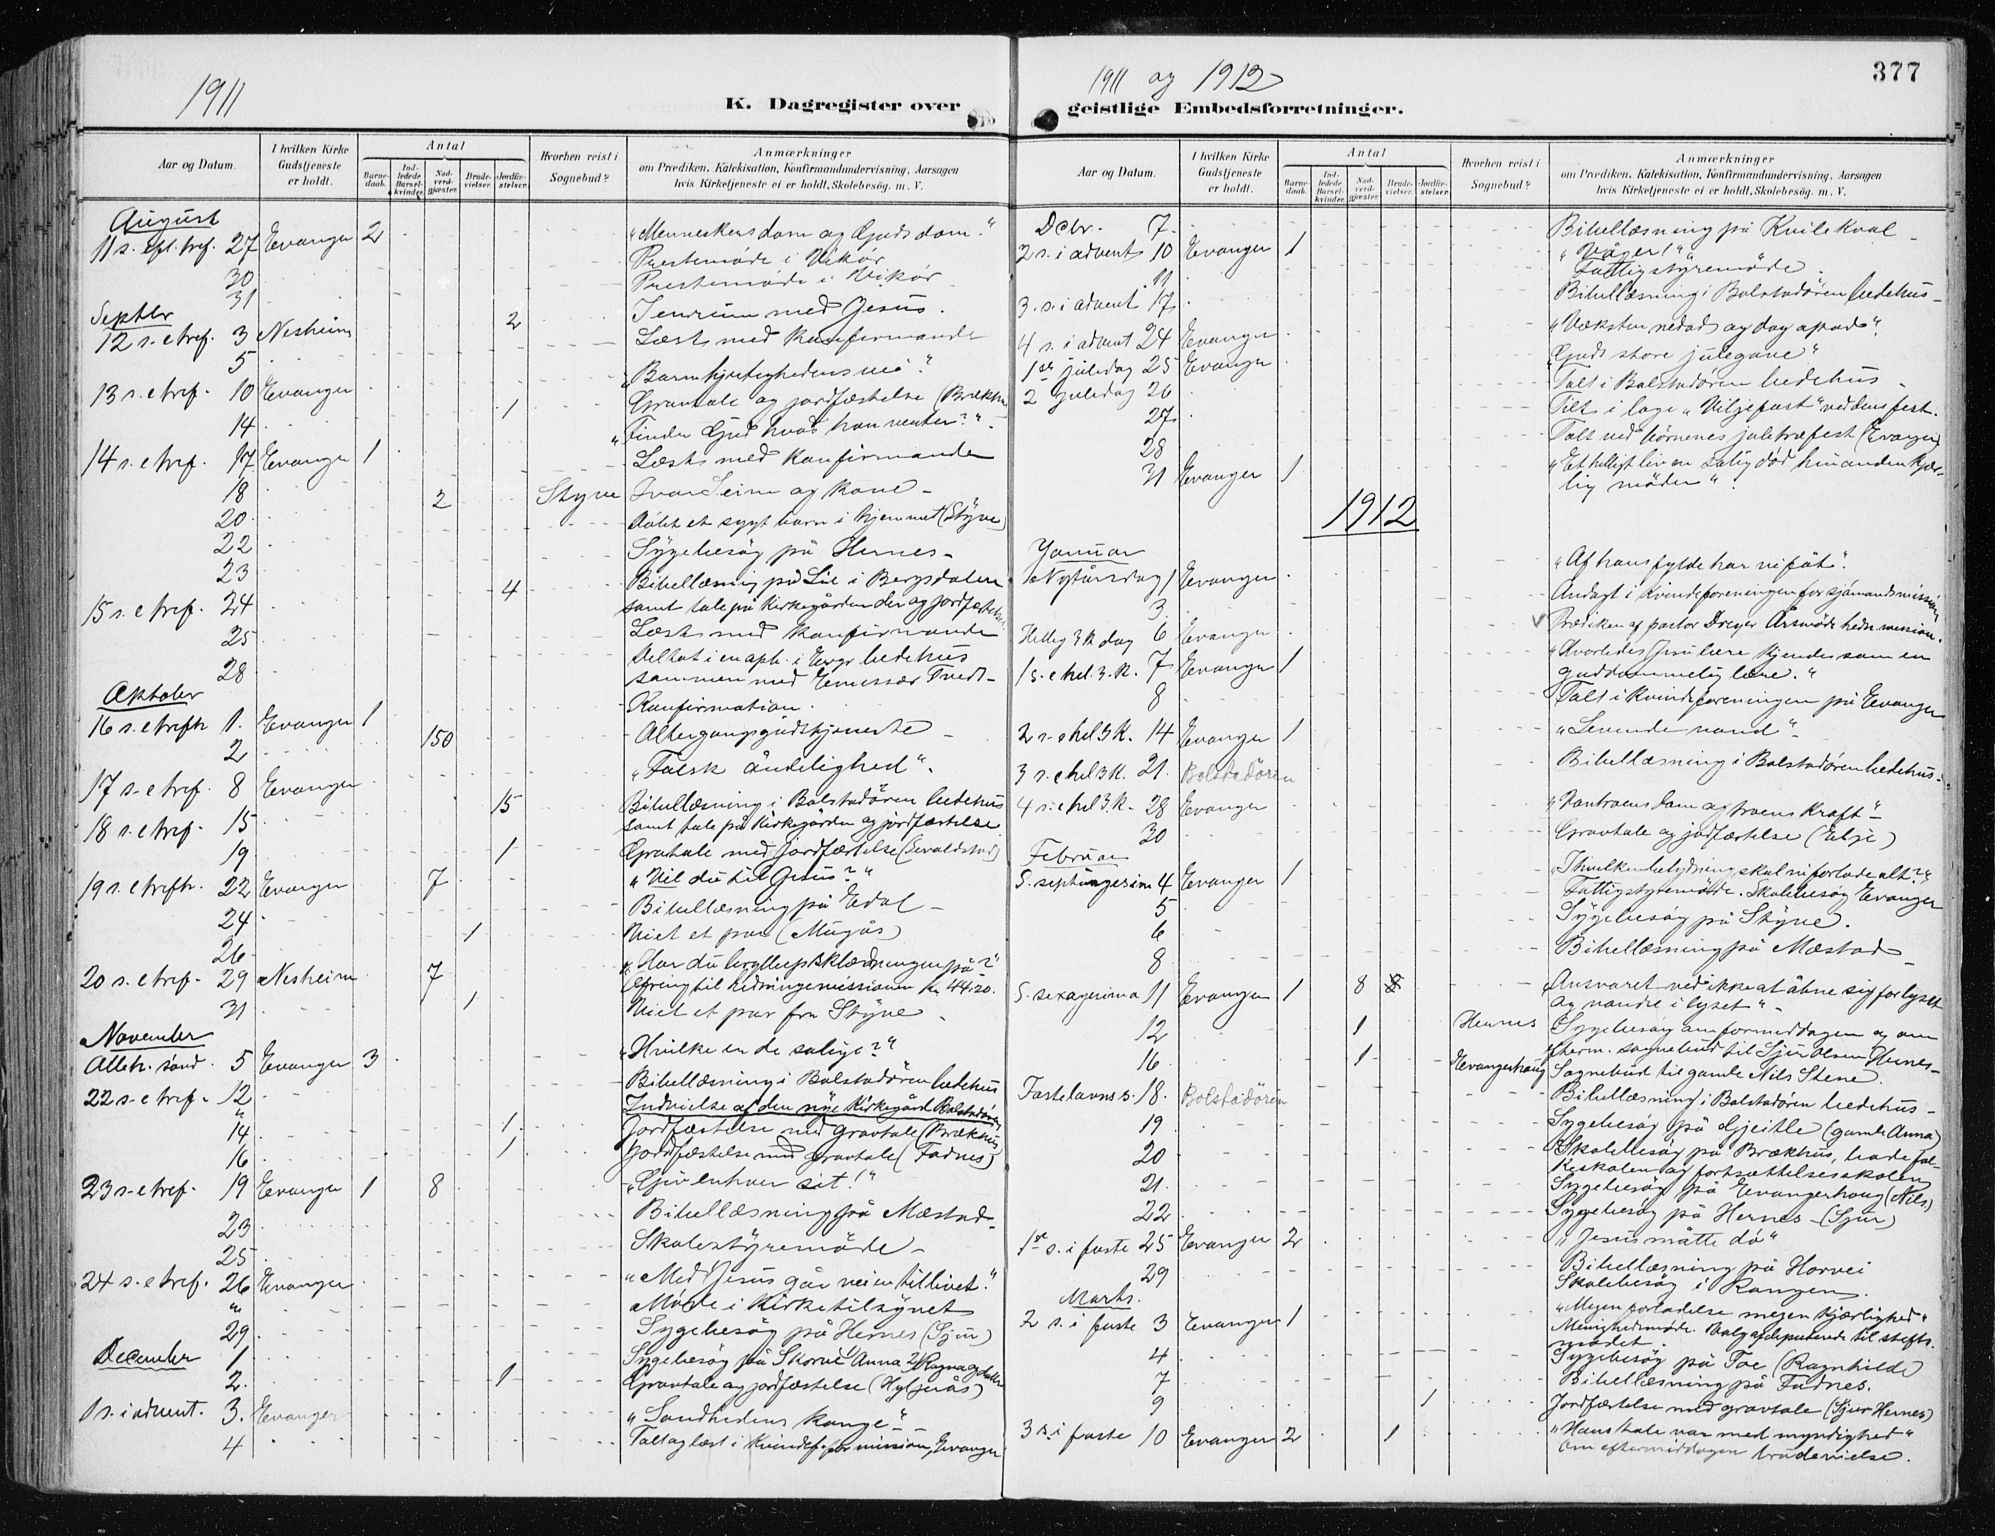 1911
K. Dagregister over
Aar og Datum.
I hvilken Kirke Gudstjeneste er holdt.
Antal
Barnedaab.
Indledede Barselkvinder.
Nadverdgjæster.
Brudevielser.
Jordfæstelser.
Hvorhen reist i Sognebud?
Anmærkninger
om Prædiken, Katekisation, Konfirmandundervisning, Aarsagen
hvis Kirketjeneste ei er holdt, Skolebesøg m. V.
August
11 s. eft. tref. 27 Evanger 2 „Menneskers dom og Guds dom."
30 Prestemøde i Vikør
31 Prestemøde i Vikør
Septbr
12 s. e tref. 3 Nesheim 2 Tenrum med Jesus.
5 Læst med konfirmande
13 s. e tref. 10 Evanger „Barmhjertighedens vei."
14 1 Gravtale og jordfæstelse (Brækhus
14 s. e tref. 17 Evanger 1 „Finder Gud hvad han venter?"
18 Læst med konfirmande
20 2 Styve Ivar Seim og kone
22 Døbt et sygt barn i hjemmet (Styve)
23 Sygebesøg på Hernes
15 s. e tref. 24 4 Bibellæsning på Lie i Bergsdalen
samt tale på kirkegården der og jordfæstelse
25 Læst med konfirmande
28 Deltat i en opb. i Evgr bedehus
sammen med Emissær Tvedt
Oktober
16 s. e trefh 1. Evanger 1 Konfirmation.
2 150 Altergangsgudstjeneste
17 s. e tref. 8 Evanger „Falsk åndelighed".
18 s. e tref. 15 15 Bibellæsning i Bolstadøren bedehus
samt tale på kirkegården og jordfæstelse
19 1 Gravtale med Jordfæstelse (Evaldstad)
19 s. e trefh. 22 Evanger 7 „Vil du til Jesus?"
24 Bibellæsning på Edal
26 1 Viet et par (Mugås)
20 s. e tref. 29 Nesheim 7 „Har du bryllupsklædningen på?"
Ofring til hedningemissionen Kr 44.20.
31 1 Viet et par fra Styve
November
Alleh. sønd. 5 Evanger 3 „Hvilke er de salige?"
22 s. e tref. 12 Bibellæsning i Bolstadøren bedehus
" Indvielse af den nye Kirkegård Bolstadøren
14 1 Jordfæstelse med gravtale (Brækhus
16 1 Jordfæstelse med gravtale (Fadnes)
23 s. e tref. 19 Evanger 1 8 „Giv enhver sit!"
23 Bibellæsning på Mæstad
25 Skolestyremøde
24 s. e tref. 26 Evanger „Med Jesus går veien til livet."
" Møde i Kirketilsynet
29 Sygebesøg på Hernes (Sjur)
December
1 Sygebesøg på Skorve Anna
2. 1 Gravtale og jordfæstelse (Hyljerås)
1 s. i advent. 3. Evanger „Sandhedens konge"
4 Talt og læst i Kvindef. for mission, Evanger
1911 og 1912
377
geistlige Embedsforretninger.
Aar og Datum.
I hvilken Kirke Gudstjeneste er holdt.
Antal
Barnedaab.
Indledede Barselkvinder.
Nadverdgjæster.
Brudevielser.
Jordfæstelser.
Hvorhen reist i Sognebud?
Anmærkninger
om Prædiken, Katekisation, Konfirmandundervisning, Aarsagen
hvis Kirketjeneste ei er holdt, Skolebesøg m. V.
Dcbr. 7. Bibellæsning på Kvilekval
2 s. i advent 10 Evanger 1 „Våger!"
11 Fattigstyremøde
3. s. i advent 17 Bibellæsning i Bolstadøren bedehus
4 s. i advent 24 Evanger „Væksten nedad og dog opad".
1ste juledag 25 Evanger „Guds store julegave"
2 juledag 26 Talt i Bolstadøren bedehus
27 Talt i loge „Viljefast" ved dens fest.
28 Talt ved børnenes juletræfest (Evanger)
31 Evanger 1 „Et helligt liv en salig død hinanden kjær-
lig møder".
1912
Januar
Nytårsdag 1 Evanger „Af hans fylde har vi fåt".
3. Andagt i Kvindeforeningen for sjømandsmission
Hellig 3 K dag 6 Evanger V Prædiken af pastor Dreyer Årsmøde hedn. mission.
1 s. e hel. 3. K. 7 Evanger 1 „Hvorledes Jesu lære kjendes som en
guddommelig lære."
8 Talt i kvindeforeningen på Evanger
2 s. e hel 3 K. 14 Evanger 1 „Levende vand"
3 s. e hel 3 K. 21. Bolstadøren Bibellæsning i Bolstadøren bedehus
4 s. e hel 3 K. 28 Evanger „Vantroens dom og troens kraft"
30 Gravtale og jordfæstelse (Eilje)
Februar
S. septuagesima 4 Evanger 1 „I hvilken betydning skal vi forlade alt?"
5 Fattigstyremøde. Skolebesøg Evanger
6 Sygebesøg på Styve.
8 Bibellæsning på Mæstad
S. sexagesima 11 Evanger 1 8 „Ansvaret ved ikke at åbne sig for lyset
og vandre i lyset"
12 1 Hernes Sygebesøg om formiddagen og om
efterm. sognebud til Sjur Olsen Hernes
16 1 Evangerhaug Sognebud til gamle Nils Stene.
Fastelavns s. 18. Bolstadøren Bibellæsning i Bolstadøren bedehus
19 Sygebesøg på Gjeitle (gamle Anna)
20 Skolebesøg på Brækhus, både fol-
keskolen og fortsættelsesskolen
21. Sygebesøg på Evangerhaug (Nils)
22 Sygebesøg på Hernes (Sjur)
1ste s. i faste 25 Evanger 2 „Jesus måtte dø"
29 Bibellæsning på Horvei
Skolebesøg i
Marts.
2 s. i faste 3 Evanger 1 „Megen forladelse megen kjærlighed"
Menighedsmøde. Valg af deputerede til stifts-
mødet.
4 Sygebesøg på Toe (Ragnhilde)
7 Bibellæsning på Fadnes.
9 1 Jordfæstelse med gravtale (Sjur Hernes)
3 s. i faste 10 Evanger 2 1 „Hans tale var med myndighed"
Om eftermiddagen brudevielse.